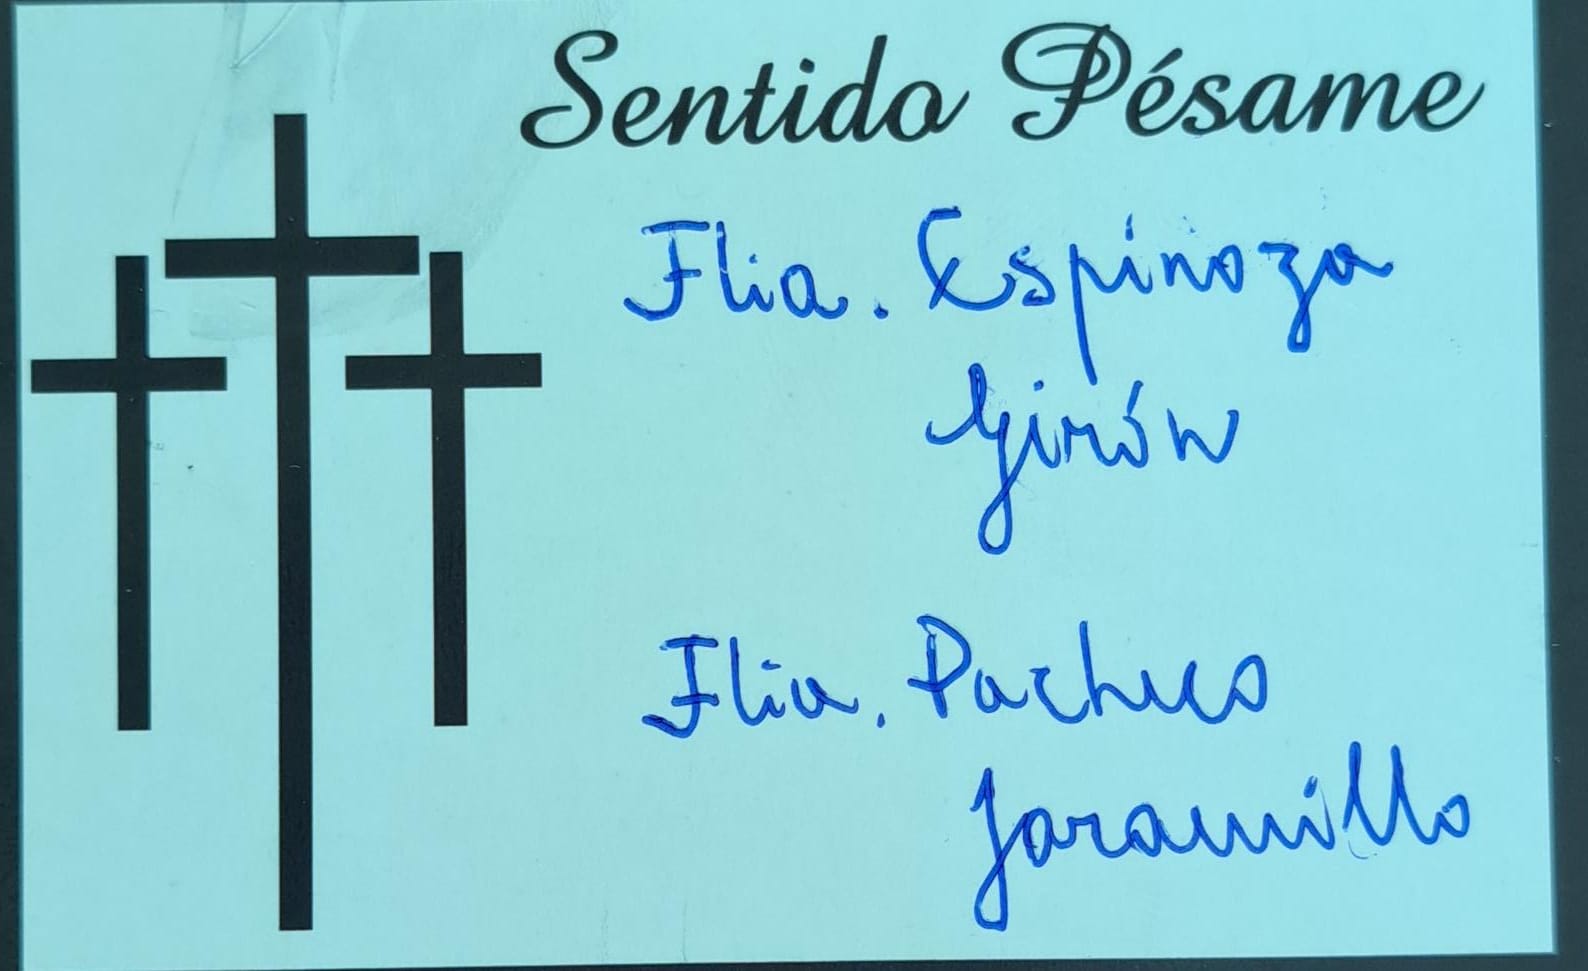 Sentido Pésame
Flia. Espinoza
Girón
Flia. Pacheco
Jaramillo